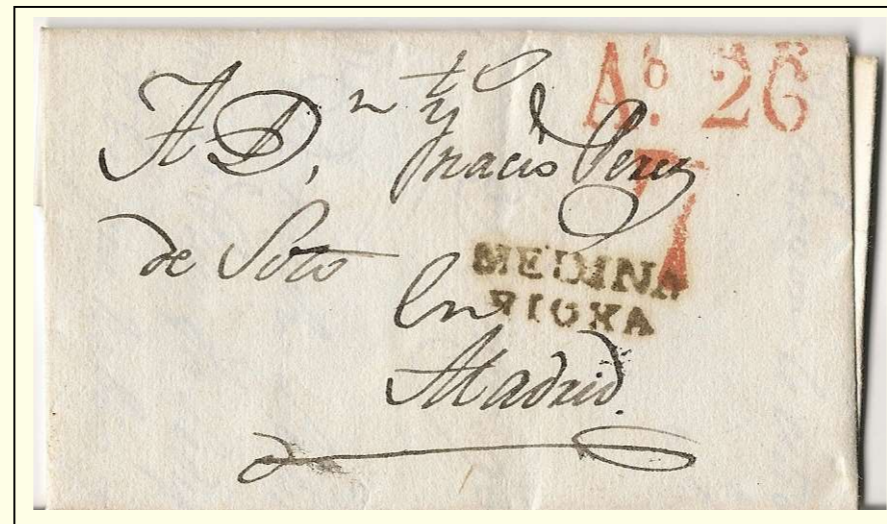 Aº. 26
A D.ⁿ Ygnacio Perez
7
de Soto
MEDINA
RIOXA
En
Madrid.